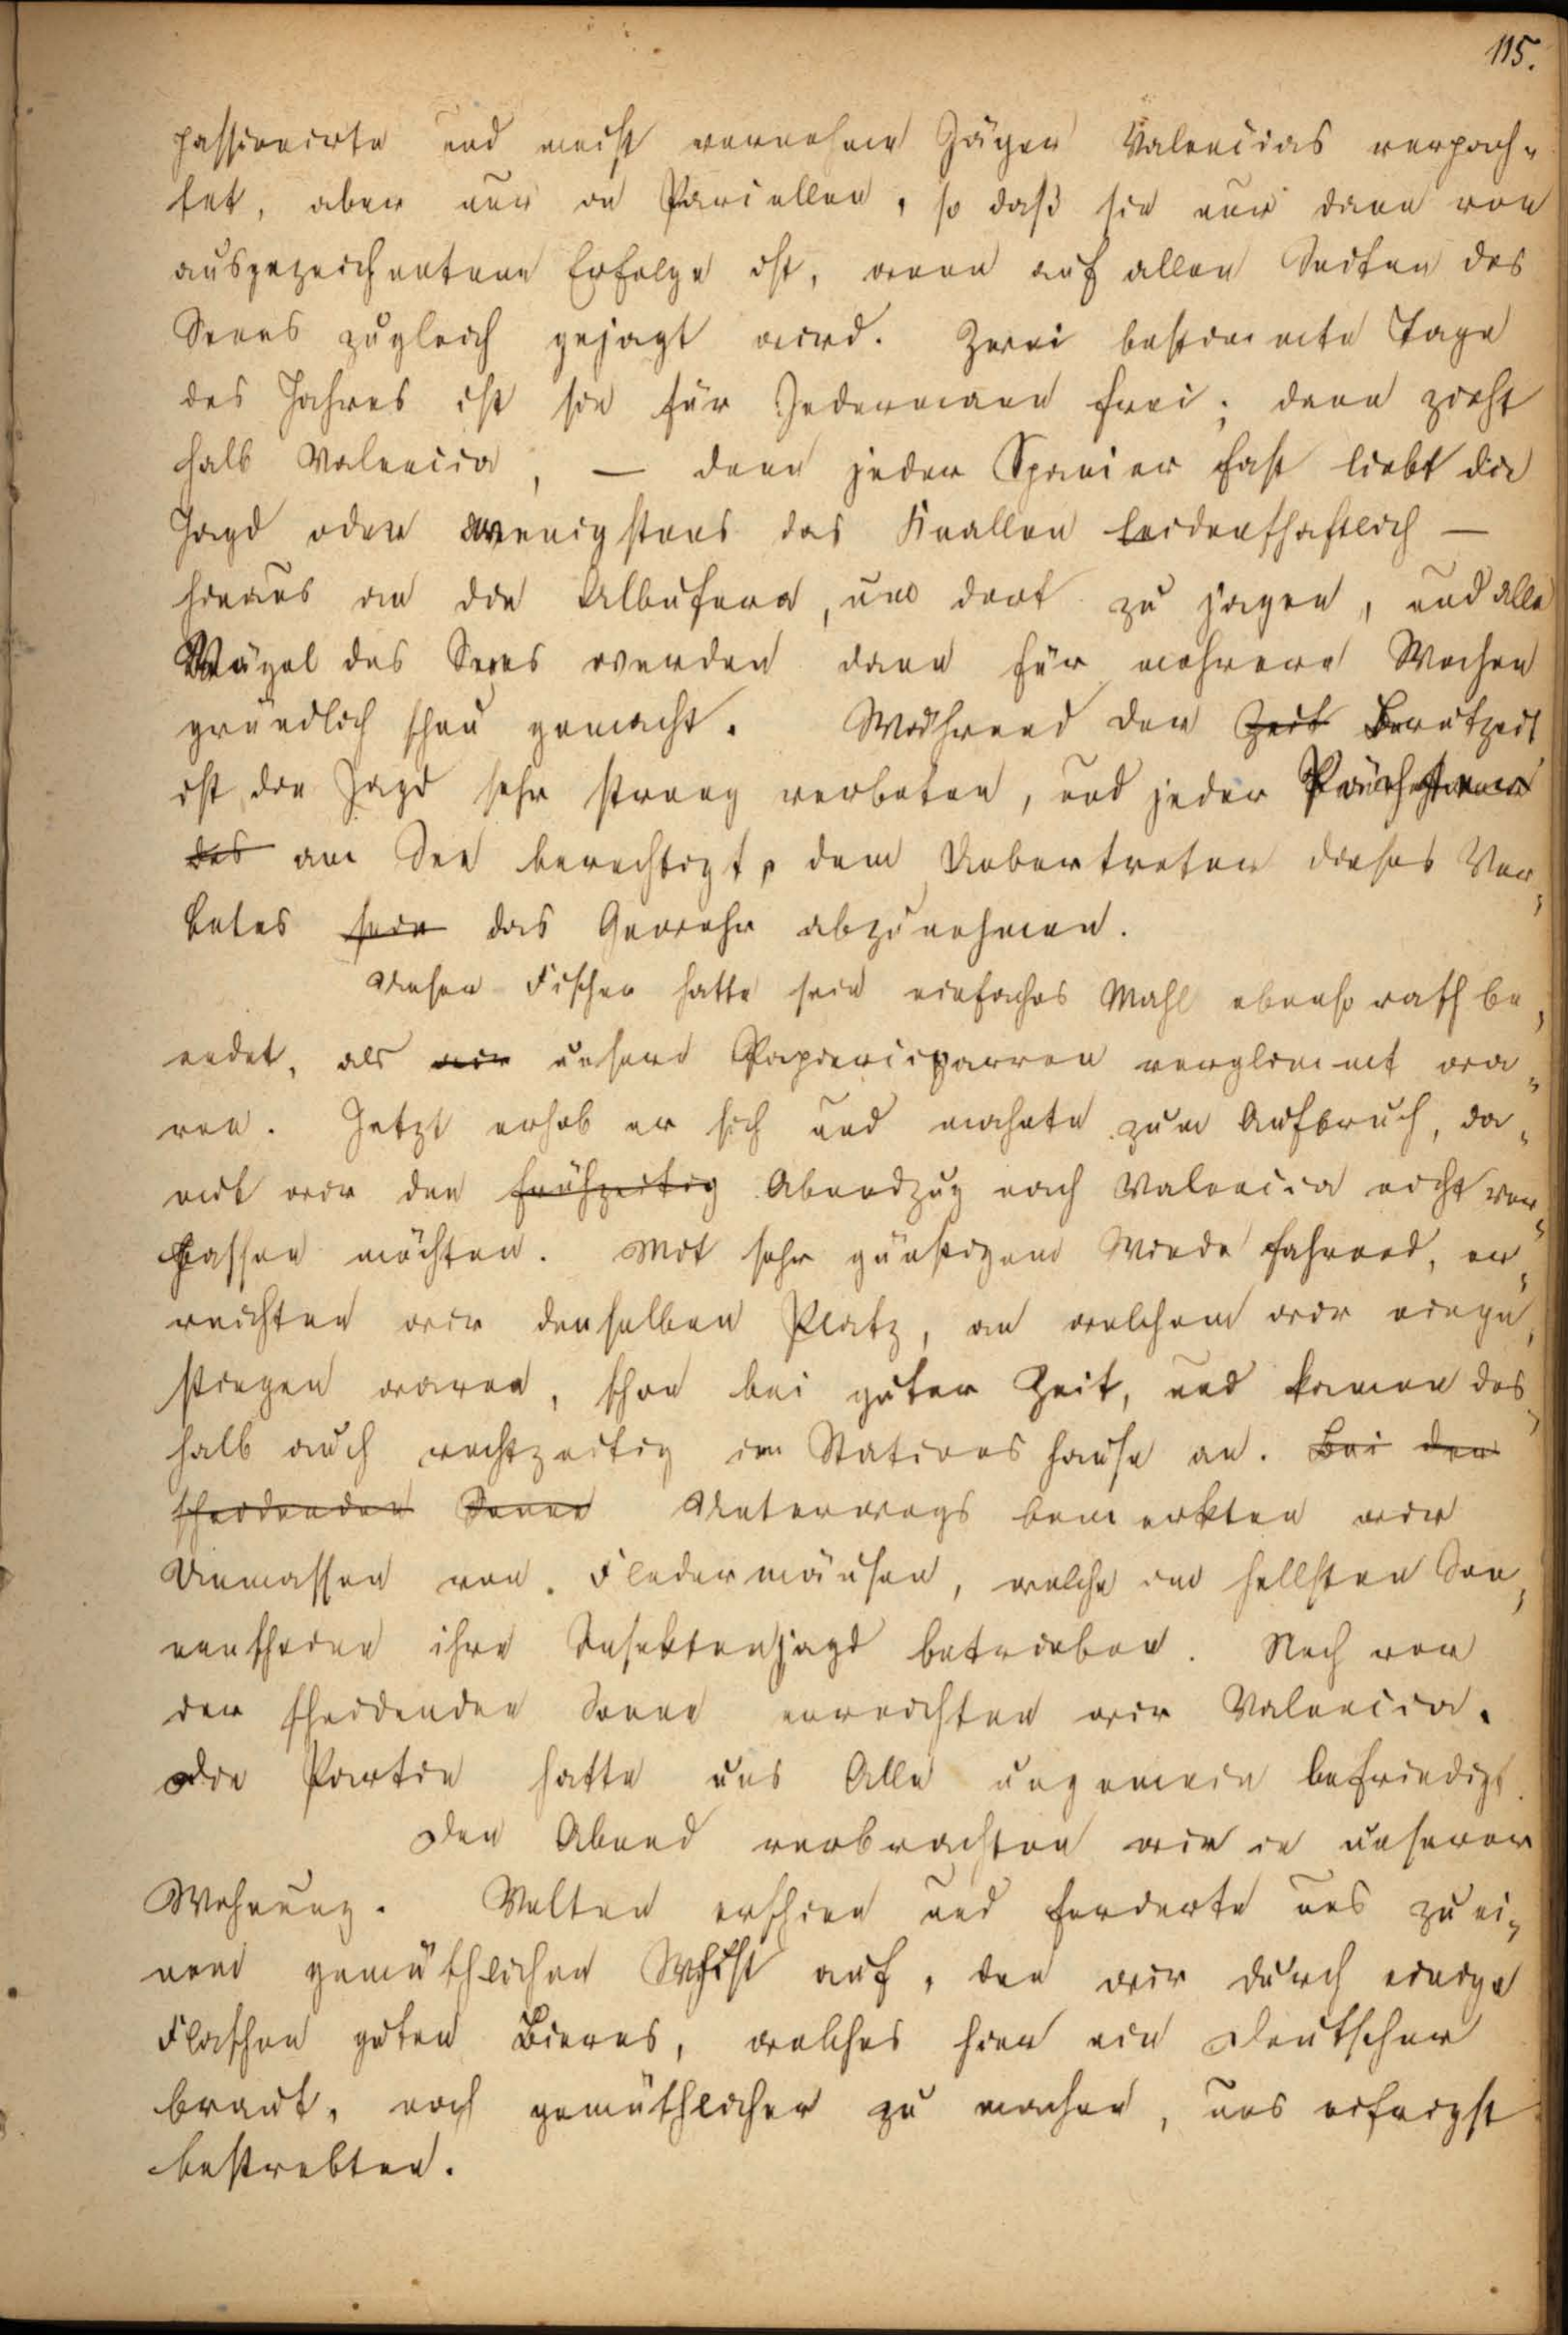 115.
passionirte und meist vornehme Jäger Valencias verpach-
tet, aber nur in Parcellen, so daß sie nur dann von
ausgezeichnetem Erfolge ist, wenn auf allen Seiten des
Sees zugleich gejagt wird. Zwei bestimmte Tage
des Jahres ist sie für Jedermann frei; dann zieht
halb Valencia, — denn jeder Spanier fast liebt die
Jagd oder wenigstens das Knallen leidenschaftlich —
hinaus an die Albufera, um dort zu jagen, und alle
Vögel des Sees werden dann für mehrere Wochen
gründlich scheu gemacht. Während der Zeit Brutzeit
ist die Jagd sehr streng verboten, und jeder Pächter
des am See berechtigt, dem Uebertreter dieses Ver-
botes sein das Gewehr abzunehmen.
Unser Fischer hatte sein einfaches Mahl ebenso rasch be-
endet, als wir unsere Papiercigarren verglimmt wa-
ren. Jetzt erhob er sich und mahnte zum Aufbruch, da-
mit wir den frühzeitig Abendzug nach Valencia nicht ver-
passen möchten. Mit sehr günstigem Winde fahrend, er-
reichten wir denselben Platz, an welchem wir einge-
stiegen waren, schon bei guter Zeit, und kamen des-
halb auch rechtzeitig im Stationshause an. Bei der
scheidenden Sonne Unterwegs bemerkten wir
Unmassen von Fledermäusen, welche im hellsten Son-
nenschein ihre Insektenjagd betrieben. Noch vor
der scheidenden Sonne erreichten wir Valencia.
Die Partie hatte uns Alle ungemein befriedigt.
Den Abend verbrachten wir in unserer
Wohnung. Velten erschien und forderte uns zu ei-
nem gemüthlichen Whist auf, den wir durch einige
Flaschen guten Bieres, welches hier ein Deutscher
braut, noch gemüthlicher zu machen, uns eifrigst
bestrebten.